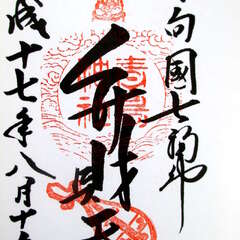 向國七福神
弁財天
成十七年八月十